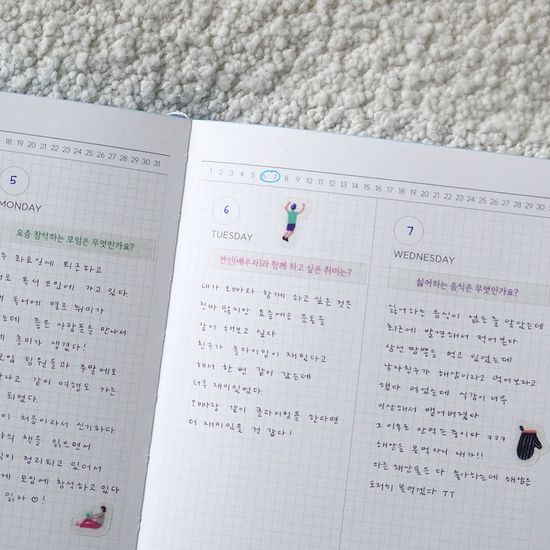 18 19 20 21 22 23 24 25 26 27 28 29 30 31
5
MONDAY
요즘 참석하는 모임은 무엇인가요?
주 화요일에 퇴근하고
로 독서 모임에 가고 있다
독서에 별로 취미가
는데 좋은 사람들을 만나서
흥미가 생겼다!
모임 팀원들과 주말에도
만나고 같이 여행도 가는
되었다.
이 처음이라서 신기하다
의 책을 읽으면서
이 정리되고 있어서
게 모임에 참석하고 있다
읽자 ♡!
1 2 3 4 5 6 7 8 9 10 11 12 13 14 15 16 17 18 19 20 21 22 23 24 25 26 27 28 29 30
6
TUESDAY
연인(배우자)과 함께 하고 싶은 취미는?
내가 오빠와 함께 하고 싶은 것은
진짜 많지만 요즘에는 운동을
같이 해보고 싶다
친구가 클라이밍이 재밌다고
해서 한 번 같이 갔는데
너무 재미있었다.
오빠랑 같이 클라이밍을 한다면
더 재미있을 것 같다!
7
WEDNESDAY
싫어하는 음식은 무엇인가요?
싫어하는 음식이 없는 줄 알았는데
최근에 발견해서 적어보다
삼선 짬뽕을 먹고 있었는데
남자친구가 해삼이라고 먹어보라고
했다 먹었는데 식감이 너무
이상해서 뱉어버렸다
그 이후로 안먹는 중이다 ㅋㅋㅋ
해삼을 못먹다니 내가!!
다른 해산물은 다 좋아하는데 해삼은
도저히 못먹겠다 ㅜㅜ